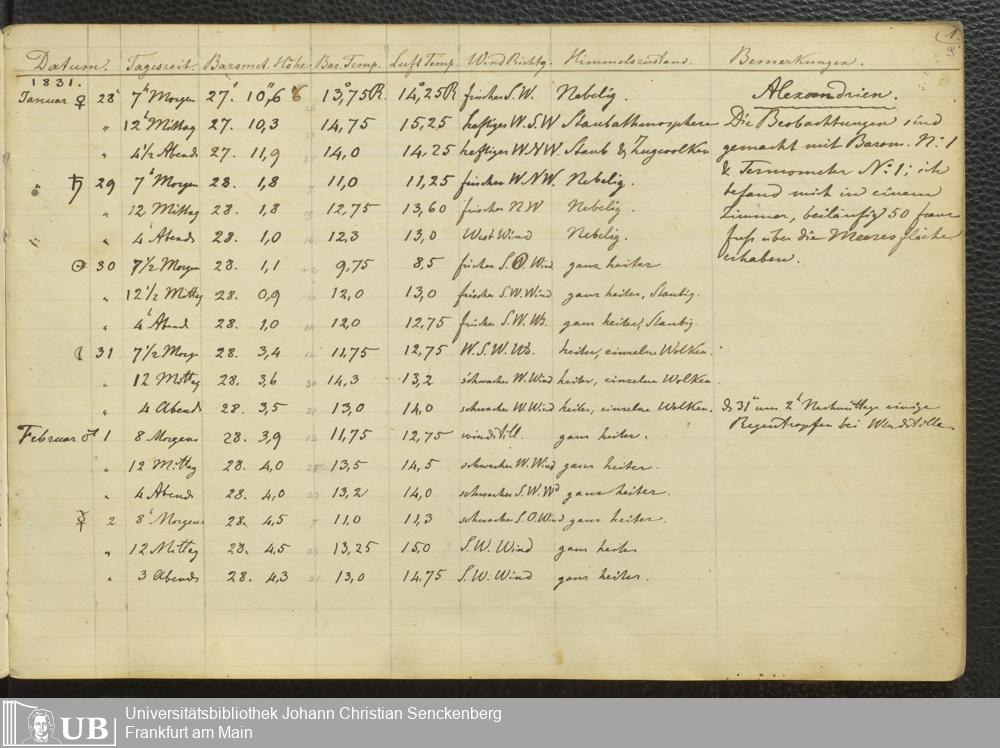 (1.
Datum. Tageszeit. Baromet. Höhe. Bar. Temp. Luft Temp. Wind Richtg. Himmelszustand. Bemerkungen.
1831.
Januar ♀ 28 7h Morgen 27." 10,"6 13,°75R 14,°25R frischer S.W. Nebelig. Alexandrien.
" 12h Mittag 27. 10,3 14,75 15,25 heftiger W.S.W Staubathmosphere Die Beobachtungen sind
" 4 1/2 Abends 27. 11,9 14,0 14,25 heftiger WNW. Staub & Zugwolken gemacht mit Barom. No 1
" ♄ 29 7h Morgen 28. 1,8 11,0 11,25 frischer WNW. Nebelig. & Termometer No 1; ich
" 12 Mittag 28. 1,8 12,75 13,60 frischer NW Nebelig. befand mich in einem
" " 4h Abends 28. 1,0 12,3 13,0 West Wind Nebelig. Zimmer, beiläufig 50 franz
☉ 30 7 1/2 Morgen 28. 1,1 9,75 8,5 frischer S.O. Wind ganz heiter fuss über die Meeresfläche
" 12 1/2 Mittag 28. 0,9 12,0 13,0 frischer S.W. Wind ganz heiter, Staubig. erhaben.
" 4h Abend 28. 1,0 12,0 12,75 frischer S.W. Wd. ganz heiter, Staubig.
☾ 31 7 1/2 Morg 28. 3,4 11,75 12,75 W.S.W. Wd. heiter, einzelne Wolken.
" 12 Mittag 28. 3,6 14,3 13,2 schwacher W. Wind heiter, einzelne Wolken.
" 4 Abends 28. 3,5 13,0 14,0 schwacher W. Wind heiter, einzelne Wolken. d. 31" um 2h Nachmittags einige
Februar ♂ 1 8 Morgens 28. 3,9 11,75 12,75 windstill. ganz heiter. Regentropfen bei Windstille
" 12 Mittag 28. 4,0 13,5 14,5 schwacher W. Wind ganz heiter.
" 4 Abends 28. 4,0 13,2 14,0 schwacher S.W. Wd ganz heiter.
☿ 2 8h Morgens 28. 4,5 11,0 11,3 schwacher S.O. Wind ganz heiter.
" 12 Mittag 28. 4,5 13,25 15,0 S.W. Wind ganz heiter
" 3 Abends 28. 4,3 13,0 14,75 S.W. Wind ganz heiter.
UB Universitätsbibliothek Johann Christian Senckenberg
Frankfurt am Main